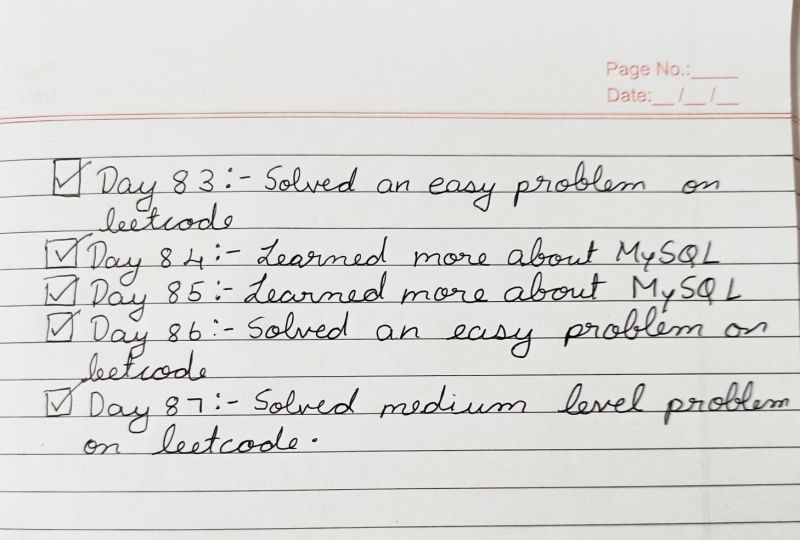 Page No.:____
Date:__/__/__
☑ Day 83:- Solved an easy problem on
leetcode
☑ Day 84:- Learned more about MySQL
☑ Day 85:- Learned more about MySQL
☑ Day 86:- Solved an easy problem on
leetcode
☑ Day 87:- Solved medium level problem
on leetcode.